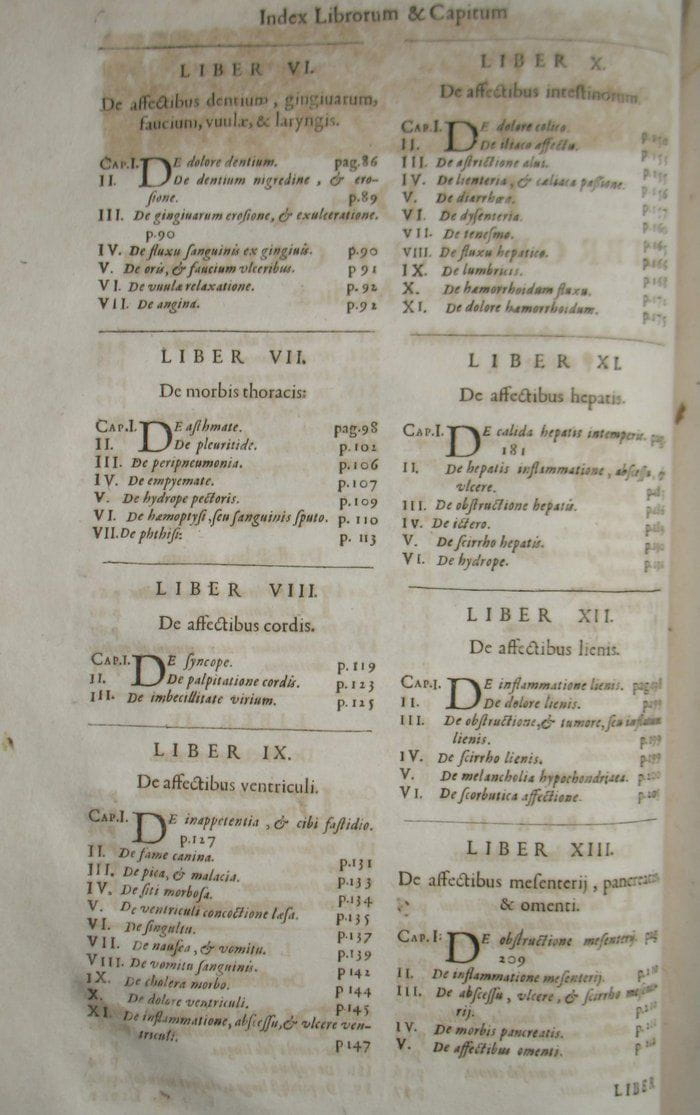 Index Librorum & Capitum
LIBER VI.
De affectibus dentium, gingiuarum,
faucium, vuulæ, & laryngis.
CAP. I. DE dolore dentium. pag. 86
II. De dentium nigredine, & ero-
sione. p. 89
III. De gingiuarum erosione, & exulceratione.
p. 90
IV. De fluxu sanguinis ex gingiuis. p. 90
V. De oris, & faucium vlceribus. p 91
VI. De vuulæ relaxatione. p. 92
VII. De angina. p. 92
LIBER VII.
De morbis thoracis:
CAP. I. DE asthmate. pag. 98
II. De pleuritide. p. 102
III. De peripneumonia. p. 106
IV. De empyemate. p. 107
V. De hydrope pectoris. p. 109
VI. De hæmoptysi, seu sanguinis sputo. p. 110
VII. De phthisi: p. 113
LIBER VIII.
De affectibus cordis.
CAP. I. DE syncope. p. 119
II. De palpitatione cordis. p. 123
III. De imbecillitate virium. p. 125
LIBER IX.
De affectibus ventriculi.
CAP. I. DE inappetentia, & cibi fastidio.
p. 127
II. De fame canina. p. 131
III. De pica, & malacia. p. 133
IV. De siti morbosa. p. 134
V. De ventriculi concoctione læsa. p. 135
VI. De singultu. p. 137
VII. De nausea, & vomitu. p. 139
VIII. De vomitu sanguinis. p 142
IX. De cholera morbo. p 144
X. De dolore ventriculi. p. 145
XI. De inflammatione, abscessu, & vlcere ven-
triculi. p 147
LIBER X.
De affectibus intestinorum.
CAP. I. DE dolore colico. p. 150
II. De iliaco affectu. p. 155
III. De astrictione alui. p. 155
IV. De lienteria, & cæliaca passione. p. 156
V. De diarrhœa. p. 157
VI. De dysenteria. p. 160
VII. De tenesmo.
VIII. De fluxu hepatico. p. 166
IX. De lumbricis. p. 168
X. De hæmorrhoidum fluxu. p. 172
XI. De dolore hæmorrhoidum. p. 175
LIBER XI.
De affectibus hepatis.
CAP. I. DE calida hepatis intemperie. pag.
181
II. De hepatis inflammatione, abscessu, &
vlcere.
III. De obstructione hepatis. p. 186
IV. De ictero. p. 189
V. De scirrho hepatis. p. 190
VI. De hydrope.
LIBER XII.
De affectibus lienis.
CAP. I. DE inflammatione lienis. pag. 198
II. De dolore lienis. p. 199
III. De obstructione, & tumore, seu inflatione
lienis. p. 199
IV. De scirrho lienis. p. 199
V. De melancholia hypochondriaca. p. 200
VI. De scorbutica affectione. p. 205
LIBER XIII.
De affectibus mesenterij, pancreatis
& omenti.
CAP. I: DE obstructione mesenterij. pag
209
II. De inflammatione mesenterij. p. 210
III. De abscessu, vlcere, & scirrho mesente-
rij. p. 210
IV. De morbis pancreatis.
V. De affectibus omenti.
LIBER